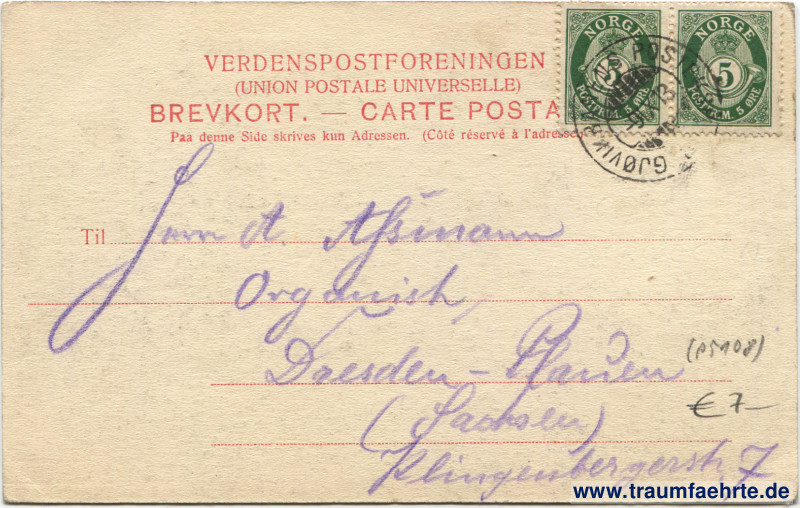 NORGE NORGE
5 5
POSTFRIM. 5 ØRE POSTFRIM. 5 ØRE
GJØVIK
VERDENSPOSTFORENINGEN
(UNION POSTALE UNIVERSELLE)
BREVKORT. — CARTE POSTA
Paa denne Side skrives kun Adressen. (Côté réservé à l'adresse
Til Herrn A. Assmann
Organist,
Dresden - Plauen
(Sachsen)
Klingenbergerstr. 7
(P5108)
€ 7-
www.traumfaehrte.de